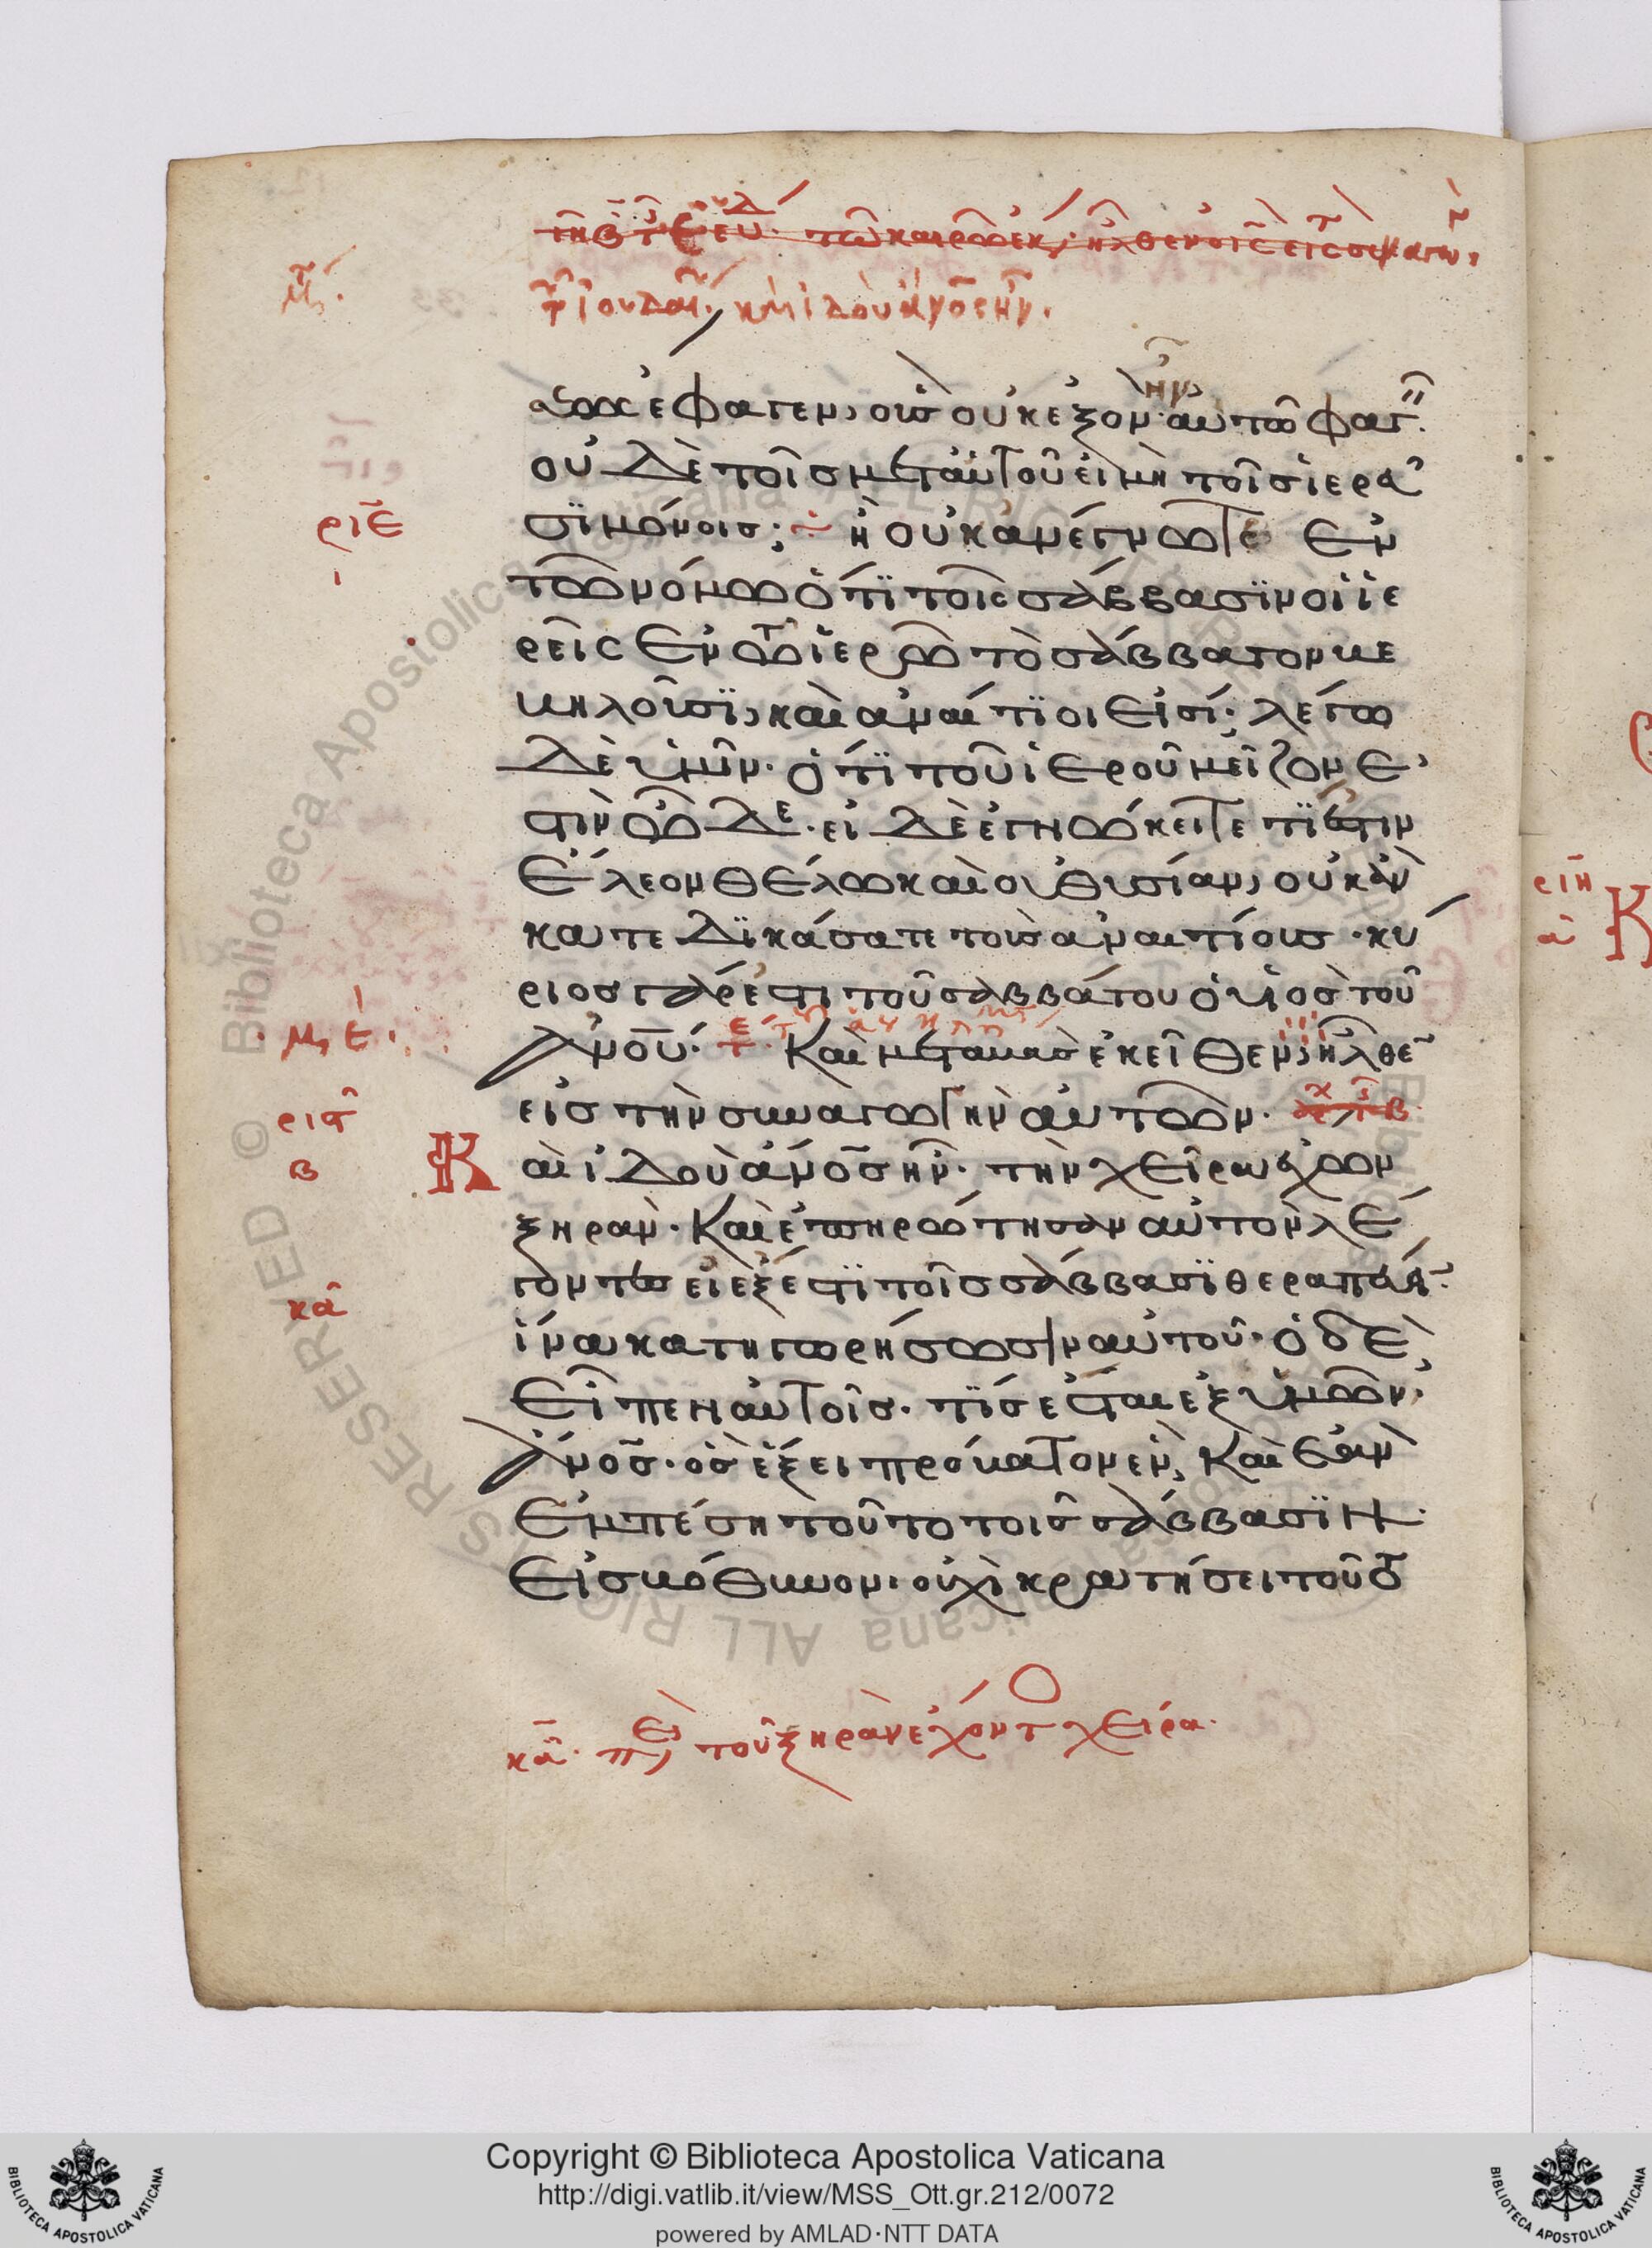 τῆ β τ ε ευ δ τῶ καιρῶ εκ, ἦλθεν ὁ ις εις συναγω,
τ ἰουδαι, κ ἰδοὺ ἀνος ἦν.
ἔφαγεν, οὓσ οὐκ εξον ἦν αὐτῶ φαγ
οὐδὲ τοῖσ μετ αὐτοῦ εἰ μὴ τοῖσ ἱερεῦ
σϊ μόνοισ; ἢ οὐκ ἀνέγνωτε ἐν
τῶ νόμω ὅτϊ τοῖς σάββασϊν οἱ ἱε
ρεῖς ἐν τῶ ἱερῶ τὸ σάββατον βε
βηλοῦσϊ, καὶ ἀναίτϊοι εἰσί· λέγω
δὲ ὑμῖν· ὅτϊ τοῦ ἱεροῦ μεῖζον ἐ
στὶν ὧδε· εἰ δὲ ἐγνώκειτε τί ἐστιν
ἔλεον θέλω καὶ οὐ θυσίαν, οὐκ ἂν
κατεδϊκάσατε τοὺσ ἀναιτίουσ· κύ
ριοσ γάρ ἐστι τοῦ σαββάτου ὁ υἱὸσ τοῦ
ἀνου· Καὶ μεταβὰσ ἐκεῖθεν, ἦλθεν
εἰσ τὴν συναγωγὴν αὐτῶν·
Καὶ ἰδοὺ ἄνοσ ἦν· τὴν χεῖρα ἔχων
ξηράν· Καὶ ἐπηρώτησαν αὐτὸν λέ
γοντεσ εἰ ἔξεστϊ τοῖσ σάββασϊ θεραπεύειν·
ἵνα κατηγορήσωσιν αὐτοῦ· ὁ δὲ
εἶπεν αὐτοῖσ· τίσ ἔσται ἐξ ὑμῶν
ἄνοσ· ὃσ ἕξει πρόβατον ἕν, Καὶ ἐὰν
ἐμπέση τοῦτο τοῖσ σάββασϊν
εἰσ βόθυνον· οὐχὶ κρατήσει τοῦτο
ριε
ι
μ, ε
ρις
β
κα
κα· πε τοῦ ξηρὰν ἔχοντ χεῖρα·
ριη
α
Κ
Copyright © Biblioteca Apostolica Vaticana
http://digi.vatlib.it/view/MSS_Ott.gr.212/0072
powered by AMLAD·NTT DATA
BIBLIOTECA APOSTOLICA VATICANA
BIBLIOTECA APOSTOLICA VATICANA